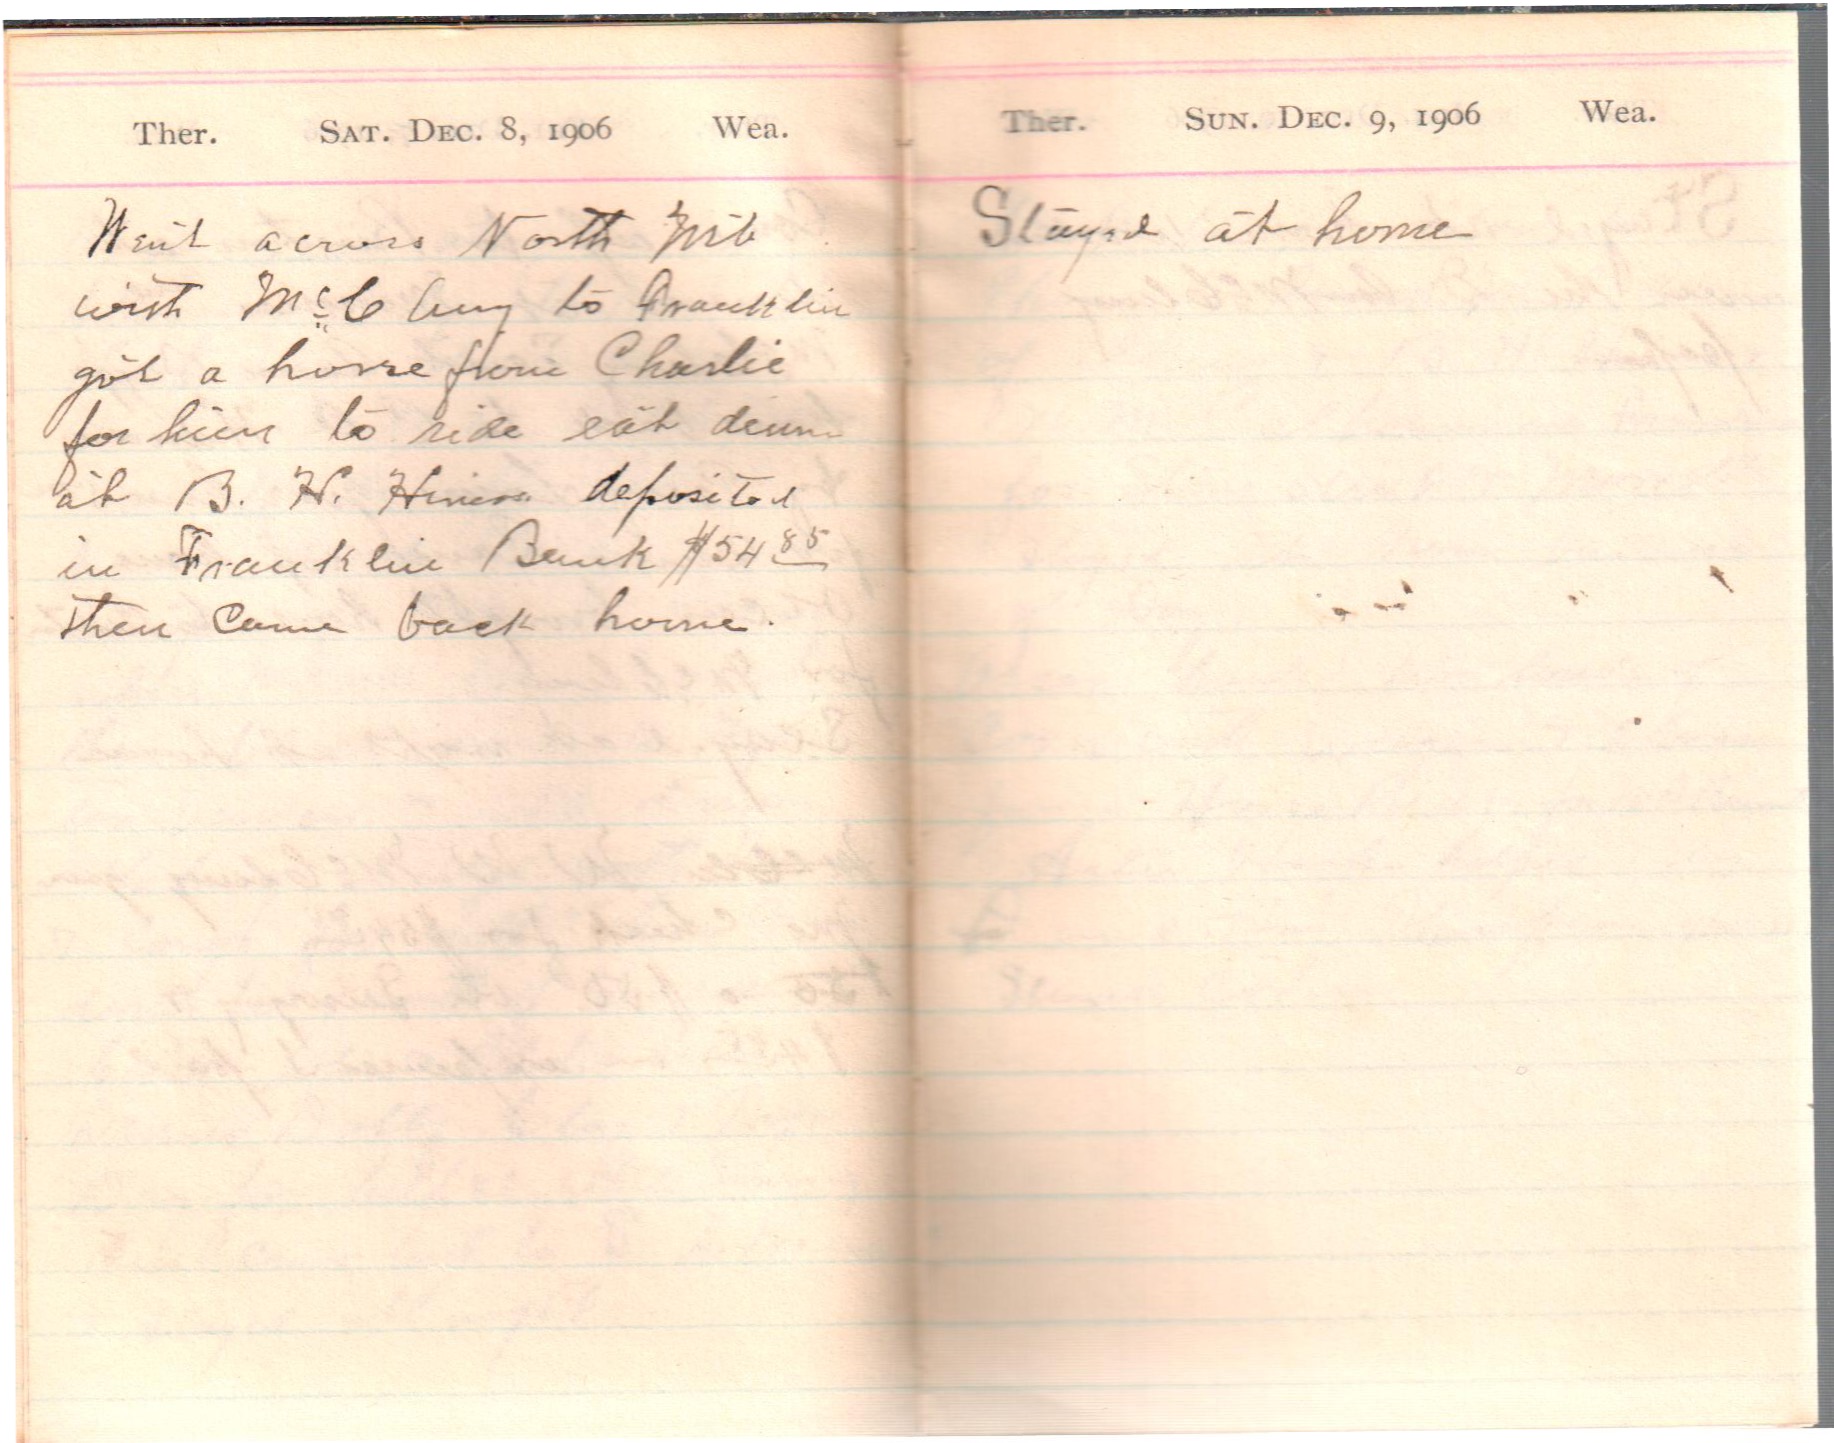 Ther. SAT. DEC. 8, 1906 Wea.
Went across North Mt
with McClung to Franklin
got a horse from Charlie
for him to ride eat dinn
at B. H. Hiners deposited
in Franklin Bank $54 85
then came back home.
Ther. SUN. DEC. 9, 1906 Wea.
Stayed at home